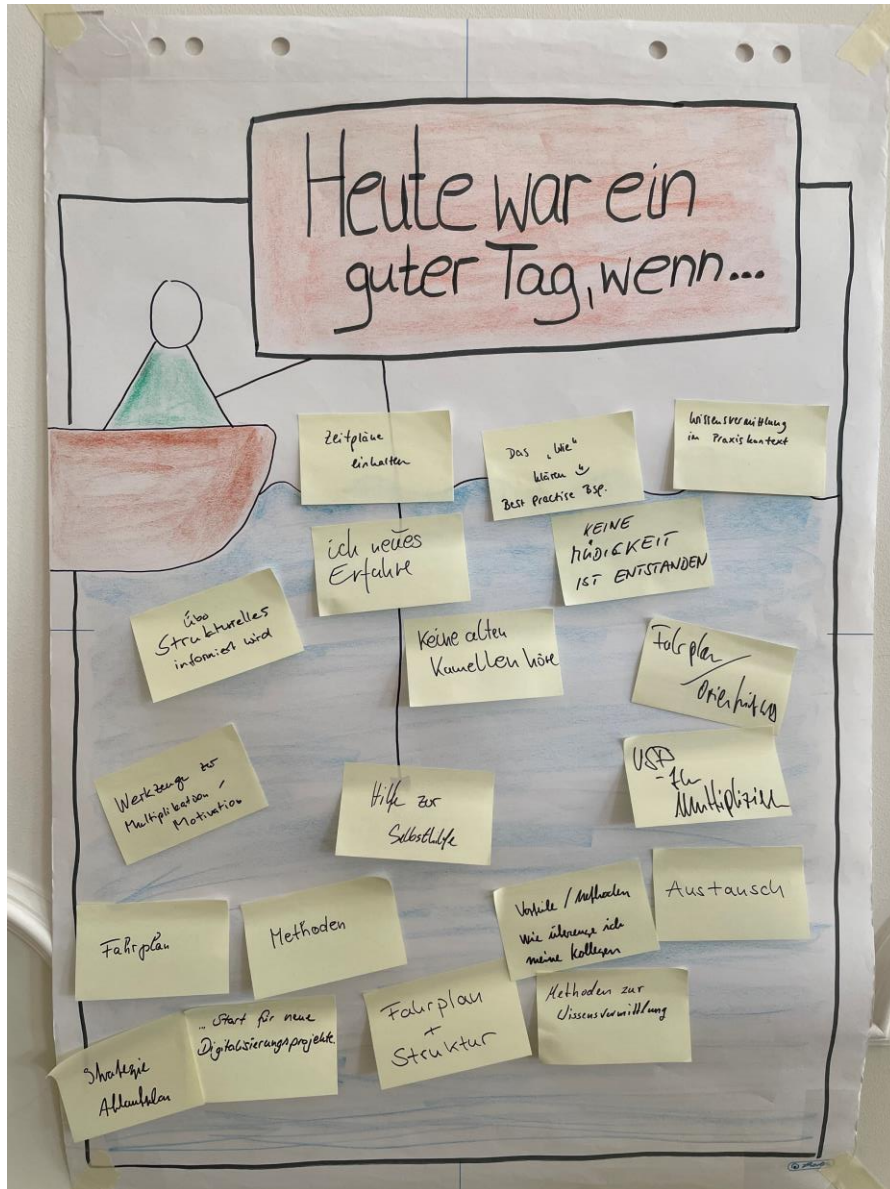 Heute war ein
guter Tag, wenn...
Zeitpläne
einhalten
Das "Wie"
klären
Best practise Bsp.
Wissensvermittlung
im Praxiskontext
ich neues
Erfahre
KEINE
MÜDIGKEIT
IST ENTSTANDEN
Strukturelles
informiert wird
Keine alten
Kamellen höre
Fahrplan/
Orientierung
Werkzeuge zur
Multiplikation /
Motivation
Hilfe zur
Selbsthilfe
USP
Fahrplan
Methoden
Vorteile / Methoden
Wie überzeuge ich
meine Kollegen
Austausch
Strategie
Ablaufplan
... Start für neue
Digitalisierungsprojekte.
Fahrplan
+
Struktur
Methoden zur
Wissensvermittlung